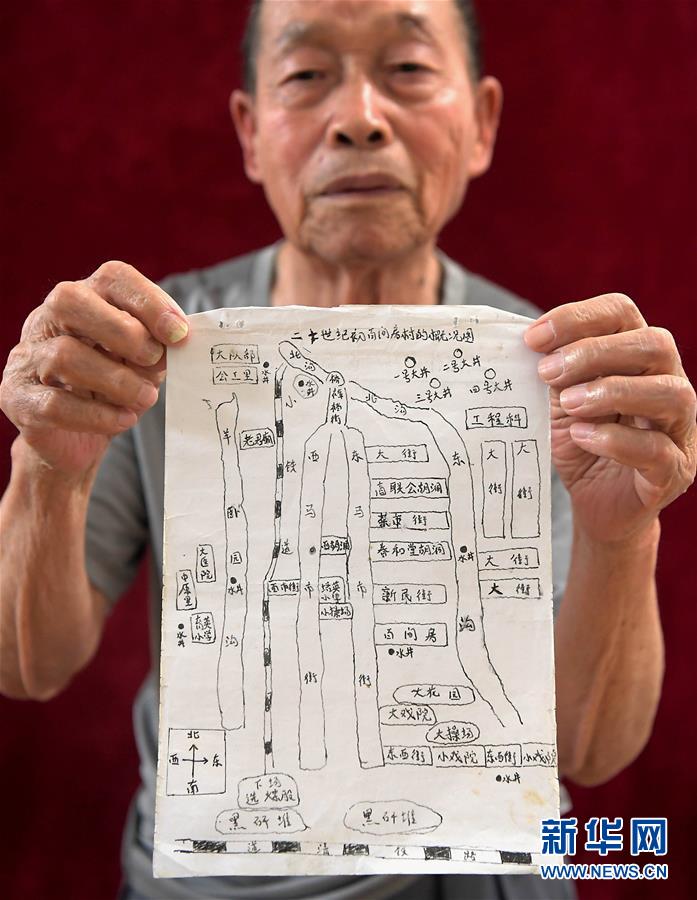 二十世纪初百间房村的概况图
大队部
公工里
水井
北河
水井
小铁道
北沟
一号大井
二号大井
三号大井
四号大井
工程科
羊卧园沟
水井
老君庙
西马市街
东马市街
大街
高联公胡洞
菜市街
泰和堂胡洞
新民街
百间房
水井
东沟
水井
大街
大街
大街
大街
西胡洞
培英小学
小操场
西市街
大医院
中原里
育英小学
水井
大花园
大戏院
大操场
东西街
小戏院
东西街
小戏院
水井
北
西
东
南
下场
选煤股
黑矸堆
黑矸堆
道清铁路
新华网
WWW.NEWS.CN